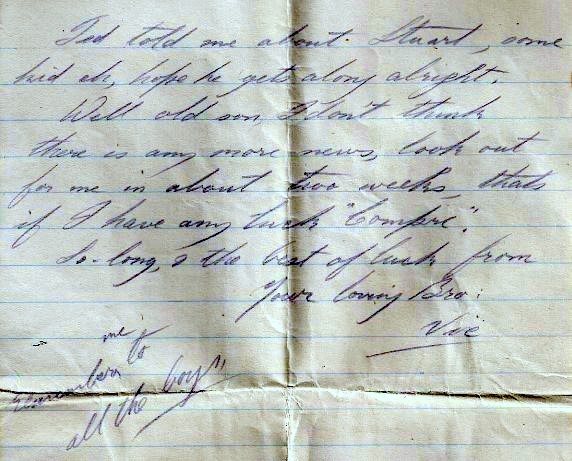 Ted told me about Stuart, some
kid eh, hope he gets along alright.
Well old son I don't think
there is any more news, look out
for me in about two weeks, thats
if I have any luck "Compre".
So-long, & the best of luck from
Your loving Bro:
Vic
remember me to
all the boys"